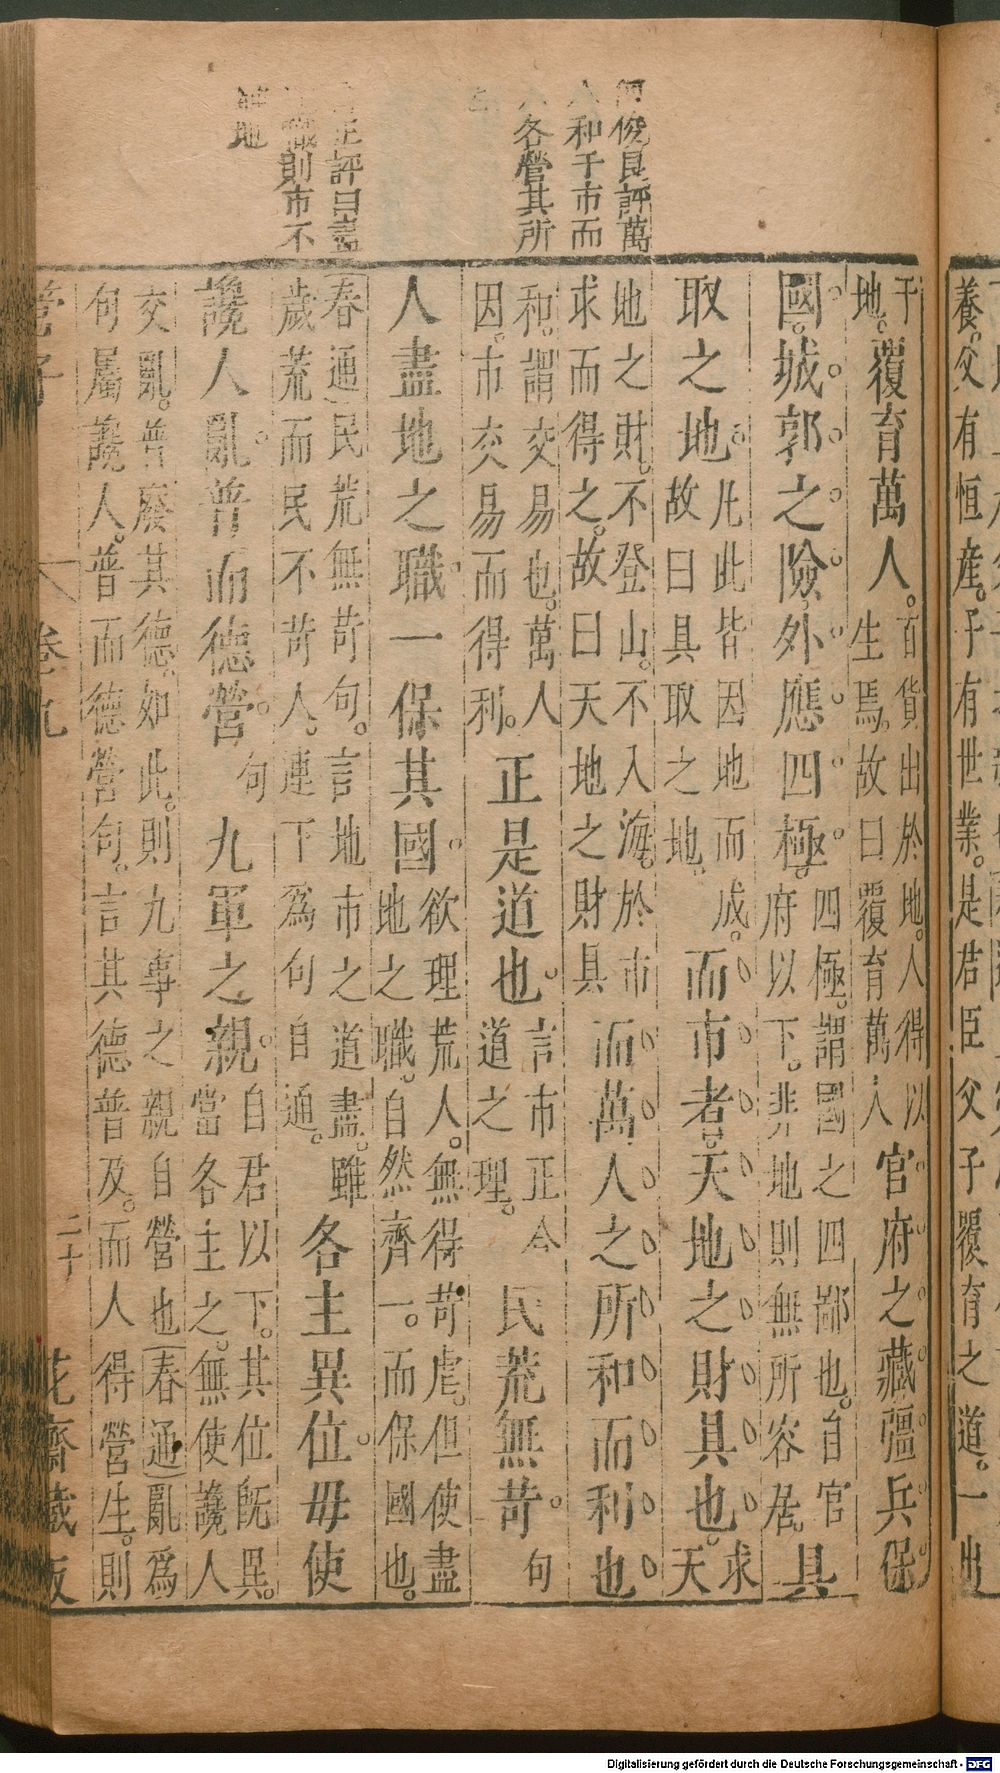 何俊良評萬
人和于市而
各營其所
正評曰言
職則市不
地
養。父有恒產。子有世業。是君臣父子覆育之道。一出
于百貨出於地。人得以
地。覆育萬人。
生焉。故曰覆育萬人
官府之藏彊兵保
國。城郭之險。外應四極。
四極。謂國之四鄙也。自官
府以下。非地則無所容居。
具
取之地。
凡此皆因地而成。
故曰具取之地。
而市者。天地之財具也。
求
天
地之財。不登山。不入海。於市
求而得之。故曰天地之財具
而萬人之所和而利也
和。謂交易也。萬人
因。市交易而得利。
正是道也。
言市正合
道之理。
民荒無苛。
句
人盡地之職。一保其國。
欲理荒人。無得苛虐。但使盡
地之職。自然齊一。而保國也。
春通民荒無苛句。言地市之道盡。雖
歲荒而民不苛人。連下為句自通。
各主異位。毋使
讒人亂。普而德營。
句
九軍之親。
自君以下。其位既異。
當各主之。無使讒人
交亂。普廢其德。如此。則九專之親自營也春通亂為
句屬讒人。普而德營句。言其德普及。而人得營生。則
管子
卷九
二十
花齋藏板
Digitalisierung gefördert durch die Deutsche Forschungsgemeinschaft - DFG